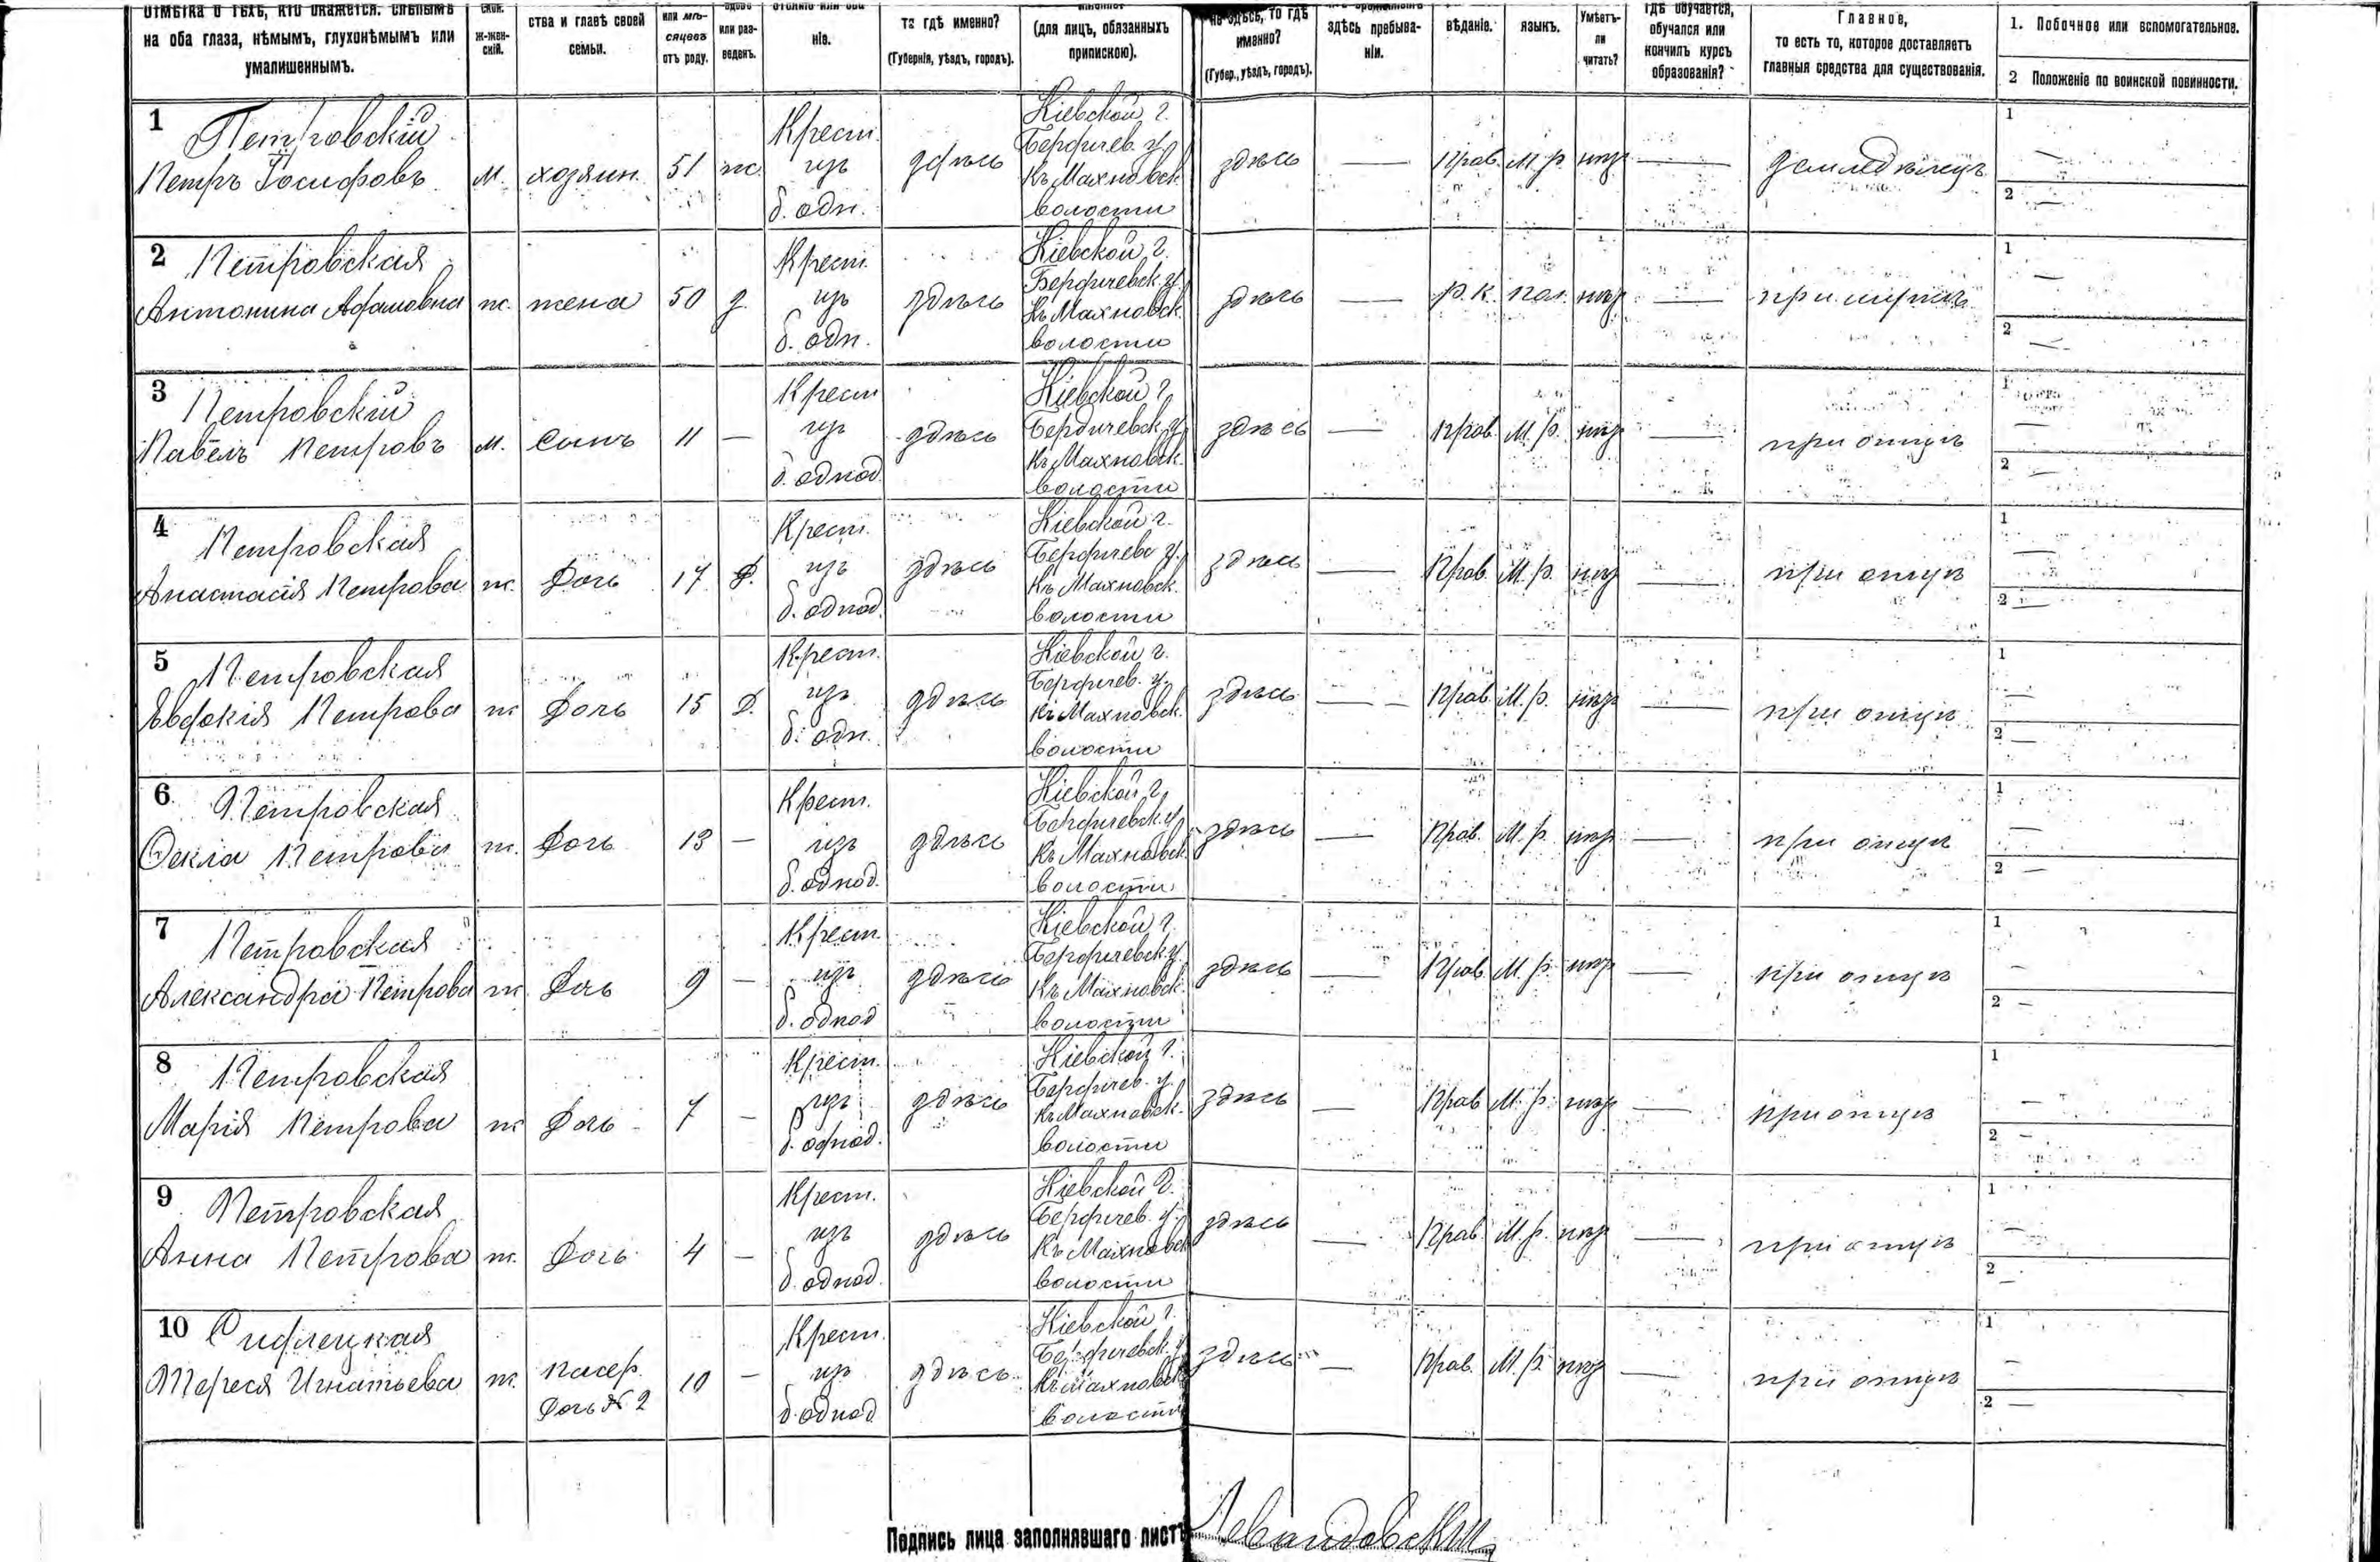 отмѣтка о тѣхъ, кто окажется: слѣпымъ
на оба глаза, нѣмымъ, глухонѣмымъ или
умалишеннымъ.
ж-жен-
скій.
ства и главѣ своей
семьи.
или мѣ-
сяцевъ
отъ роду.
или раз-
веденъ.
ніе.
та гдѣ именно?
(Губернія, уѣздъ, городъ).
(для лицъ, обязанныхъ
припискою).
не здѣсь, то гдѣ
именно?
(Губер., уѣздъ, городъ).
здѣсь пребыва-
ніи.
вѣданіе.
языкъ.
Умѣетъ-
ли
читать?
гдѣ обучается,
обучался или
кончилъ курсъ
образованія?
Главное,
то есть то, которое доставляетъ
главныя средства для существованія.
1. Побочное или вспомогательное.
2 Положеніе по воинской повинности.
1
Петровскій
Петръ Іосифовъ
м.
хозяин.
51
ж.
Крест.
изъ
б. одн.
здѣсь
Кіевской г.
Бердичев. у.
Къ Махновск.
волости
здѣсь
—
Прав.
М. р.
нѣт
—
земледѣлецъ
1
—
2
—
2
Петровская
Антонина Адамовна
ж.
жена
50
з.
Крест.
изъ
б. одн.
здѣсь
Кіевской г.
Бердичевск. у.
Къ Махновск.
волости
здѣсь
—
р. к.
пол.
нѣт
—
при мужѣ
1
—
2
—
3
Петровскій
Павелъ Петровъ
м.
сынъ
11
—
Крест
изъ
б. однод.
здѣсь
Кіевской г.
Бердичевск. у.
Къ Махновск.
волости
здѣсь
—
Прав.
М. р.
нѣт
—
при отцѣ
1
—
2
—
4
Петровская
Анастасія Петрова
ж.
Дочь
17
Д.
Крест.
изъ
б. однод.
здѣсь
Кіевской г.
Бердичевс у.
Къ Махновск.
волости
здѣсь
—
Прав.
М. р.
нѣт
—
при отцѣ
1
—
2
—
5
Петровская
Евдокія Петрова
ж
Дочь
15
Д.
Крест.
изъ
б. одн.
здѣсь
Кіевской г.
Бердичев. у.
Къ Махновск.
волости
здѣсь
—
Прав.
М. р.
нѣт
—
при отцѣ
1
—
2
—
6
Петровская
Ѳекла Петрова
ж.
Дочь
13
—
Крест.
изъ
б. однод.
здѣсь
Кіевской г.
Бердичевск. у.
Къ Махновск.
волости
здѣсь
—
Прав.
М. р.
нѣт
—
при отцѣ
1
—
2
—
7
Петровская
Александра Петрова
ж.
Дочь
9
—
Крест.
изъ
б. однод
здѣсь
Кіевской г.
Бердичевск. у.
Къ Махновск.
волости
здѣсь
—
Прав.
М. р.
нѣт
—
при отцѣ
1
—
2
—
8
Петровская
Марія Петрова
ж
Дочь
7
—
Крест.
изъ
б. однод.
здѣсь
Кіевской г.
Бердичев. у.
Къ Махновск.
волости
здѣсь
—
Прав
М. р.
нѣт
—
при отцѣ
1
—
2
—
9
Петровская
Анна Петрова
ж.
Дочь
4
—
Крест.
изъ
б. однод.
здѣсь
Кіевской г.
Бердичев. у.
Къ Махновск
волости
здѣсь
—
Прав
М. р.
нѣт
—
при отцѣ
1
—
2
—
10
Тереся Игнатьева
ж.
пасер.
Дочь № 2
10
—
Крест.
изъ
б. однод
здѣсь
Кіевской г.
Бердичевск. у.
Къ Махновск.
волости
здѣсь
—
Прав.
М. р.
нѣт
—
при отцѣ
1
—
2
—
Подпись лица заполнявшаго листъ
Левандовскій